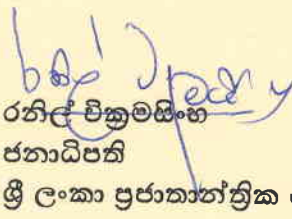 රනිල් වික්‍රමසිංහ
ජනාධිපති
ශ්‍රී ලංකා ප්‍රජාතාන්ත්‍රික